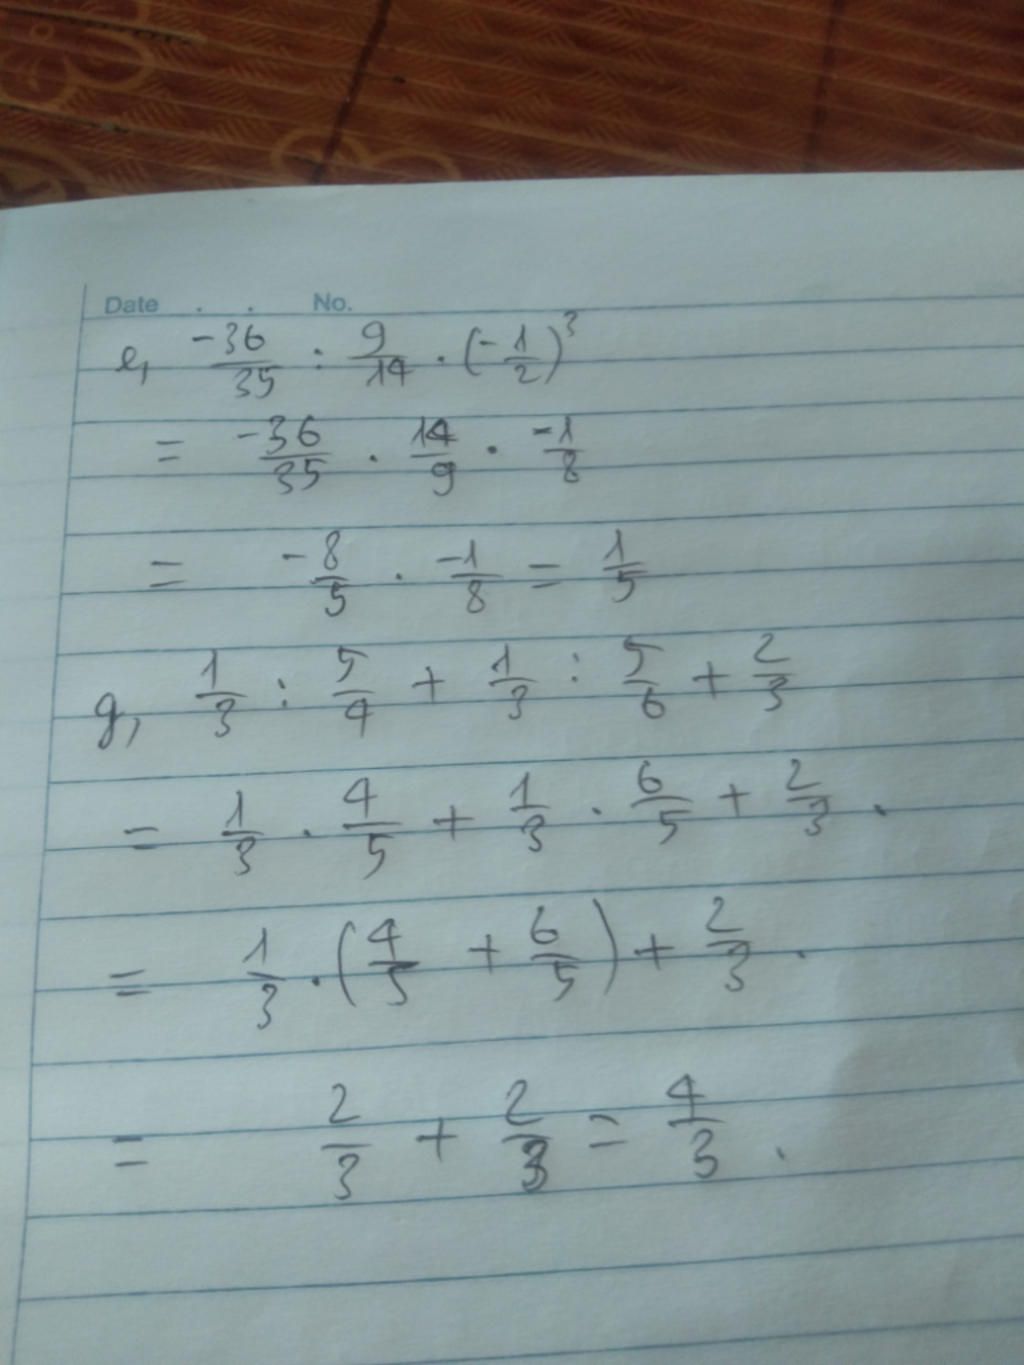 Date . . No.
e, -36/35 : 9/14 . (-1/2)³
= -36/35 . 14/9 . -1/8
= -8/5 . -1/8 = 1/5
g, 1/3 : 5/4 + 1/3 : 5/6 + 2/3
= 1/3 . 4/5 + 1/3 . 6/5 + 2/3 .
= 1/3 . (4/5 + 6/5) + 2/3 .
= 2/3 + 2/3 = 4/3 .